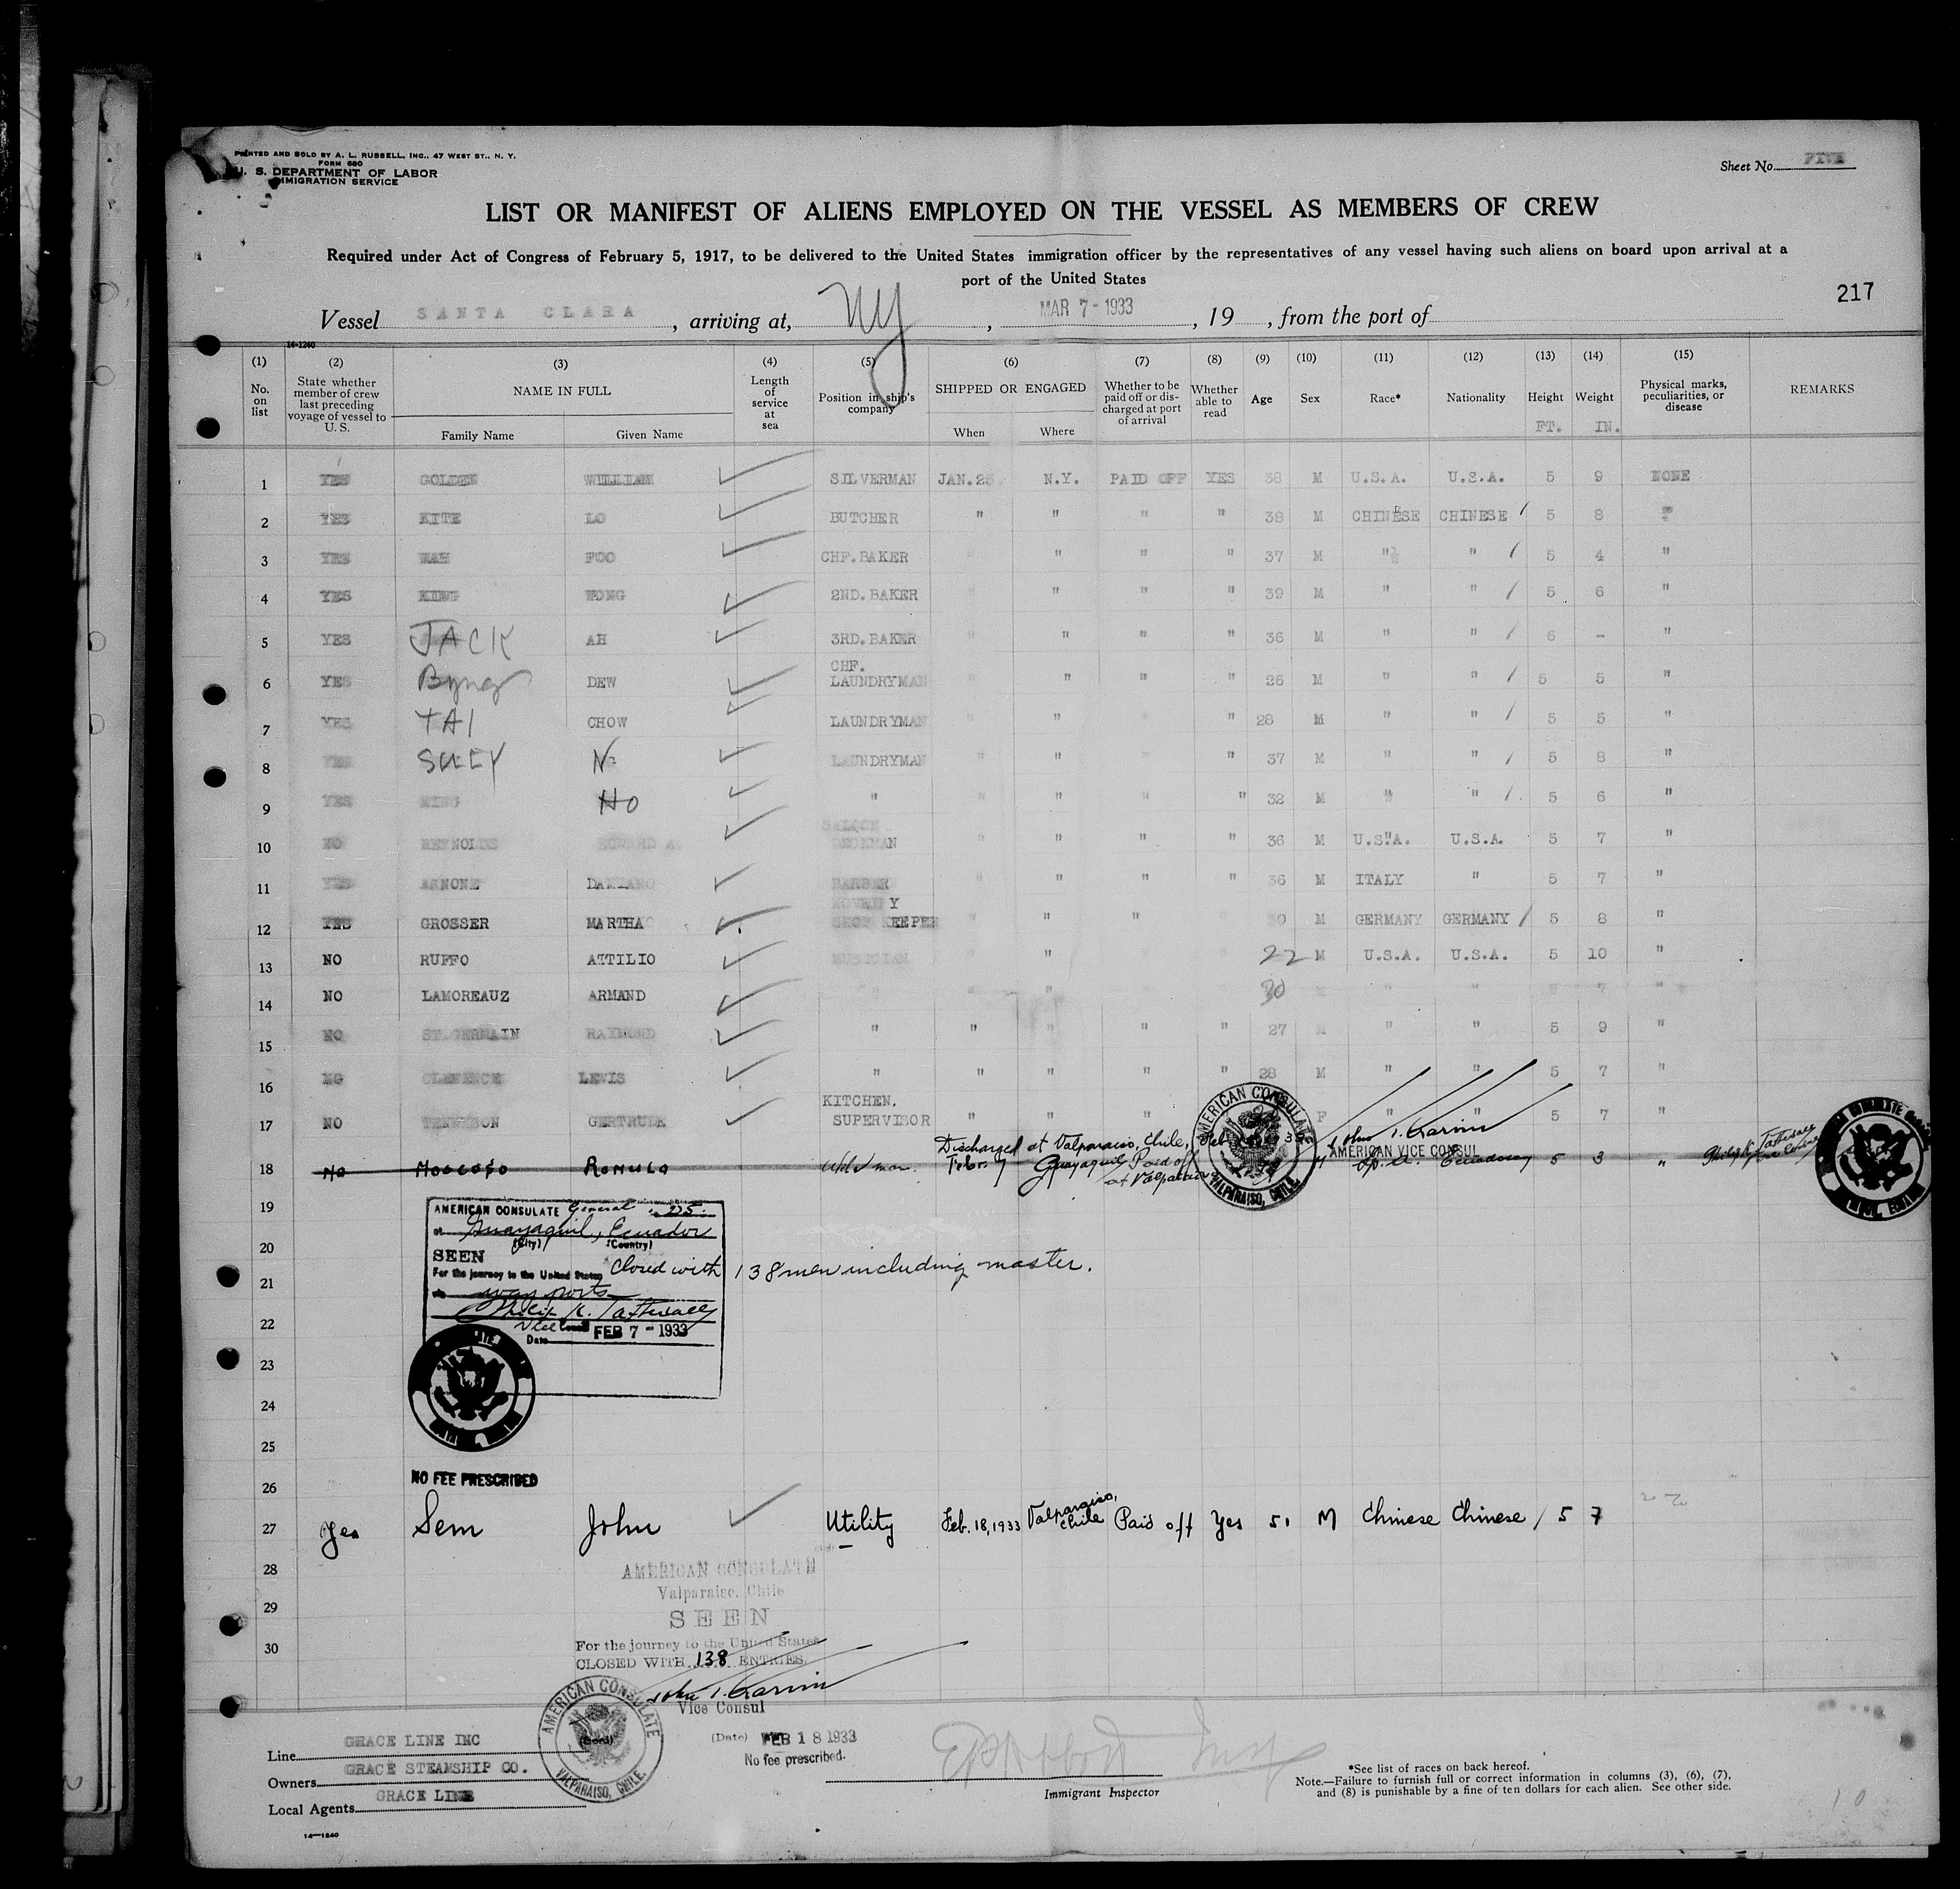 PRINTED AND SOLD BY A. L. RUSSELL, INC., 47 WEST ST., N. Y.
FORM 680
U. S. DEPARTMENT OF LABOR
IMMIGRATION SERVICE
Sheet No. FIVE
LIST OR MANIFEST OF ALIENS EMPLOYED ON THE VESSEL AS MEMBERS OF CREW
Required under Act of Congress of February 5, 1917, to be delivered to the United States immigration officer by the representatives of any vessel having such aliens on board upon arrival at a
port of the United States
217
Vessel SANTA CLARA, arriving at, NY, MAR 7 - 1933, 19 , from the port of
14-1240
(1) (2) (3) (4) (5) (6) (7) (8) (9) (10) (11) (12) (13) (14) (15)
No. on list State whether member of crew last preceding voyage of vessel to U. S. NAME IN FULL Family Name Given Name Length of service at sea Position in ship's company SHIPPED OR ENGAGED When Where Whether to be paid off or discharged at port of arrival Whether able to read Age Sex Race* Nationality Height Weight Physical marks, peculiarities, or disease REMARKS
FT. IN.
1 YES GOLDEN WILLIAM SILVERMAN JAN.26 N.Y. PAID OFF YES 38 M U.S.A. U.S.A. 5 9 NONE
2 YES KITE LO BUTCHER " " " " 38 M CHINESE CHINESE 5 8 "
3 YES WAH FOO CHF.BAKER " " " " 37 M " " 5 4 "
4 YES KING WONG 2ND.BAKER " " " " 39 M " " 5 6 "
5 YES JACK AH 3RD.BAKER " " " " 36 M " " 6 - "
6 YES Byng DEW CHF. LAUNDRYMAN " " " " 26 M " " 5 5 "
7 YES TAI CHOW LAUNDRYMAN " " " " 28 M " " 5 5 "
8 YES SUEY LAUNDRYMAN " " " " 37 M " " 5 8 "
9 YES MING HO " " " " " 32 M " " 5 6 "
10 NO REYNOLDS EDWARD A. SALOON DECKMAN " " " " 36 M U.S.A. U.S.A. 5 7 "
11 YES ANNONE DAMIANO BARBER " " " " 36 M ITALY " 5 7 "
12 YES GROSSER MARTHA KEEPER " " " 30 M GERMANY GERMANY 5 8 "
13 NO RUFFO ATTILIO MUSICIAN " 22 M U.S.A. U.S.A. 5 10 "
14 NO LAMOREAUZ ARMAND " " 30 M " " 5 7 "
15 NO ST.GERMAIN RAYMOND " " " " " 27 M " " 5 9 "
16 NO CLEMENCE LEWIS " " " " " 28 M " " 5 7 "
17 NO TENNYSON GERTRUDE KITCHEN. SUPERVISOR " " " F " " 5 7
Discharged at Valparaiso, Chile,
AMERICAN VICE CONSUL
18 No Moscoso Romulo Febr. 7 Guayaquil Paid off at Valparaiso Ecuador 5 3 "
AMERICAN CONSULATE VALPARAISO, CHILE.
19
AMERICAN CONSULATE General
at Guayaquil, Ecuador
(City) (Country)
20
SEEN
For the journey to the United States Closed with 138 men including master.
21
via way ports
Philip K. Tattersall
22
Vice Consul
Date FEB 7 - 1933
23
24
25
26
NO FEE PRESCRIBED
27 Yes Sem John Utility Feb. 18, 1933 Valparaiso, Chile Paid off Yes 51 M Chinese Chinese 5 7
28
AMERICAN CONSULATE
Valparaiso, Chile
29
SEEN
30
For the journey to the United States
CLOSED WITH 138 ENTRIES.
Vice Consul
AMERICAN CONSULATE (Seal) VALPARAISO, CHILE.
(Date) FEB 18 1933
No fee prescribed.
Line GRACE LINE INC
Owners GRACE STEAMSHIP CO.
Local Agents GRACE LINE
Immigrant Inspector
*See list of races on back hereof.
Note.—Failure to furnish full or correct information in columns (3), (6), (7),
and (8) is punishable by a fine of ten dollars for each alien. See other side.
14—1240
10